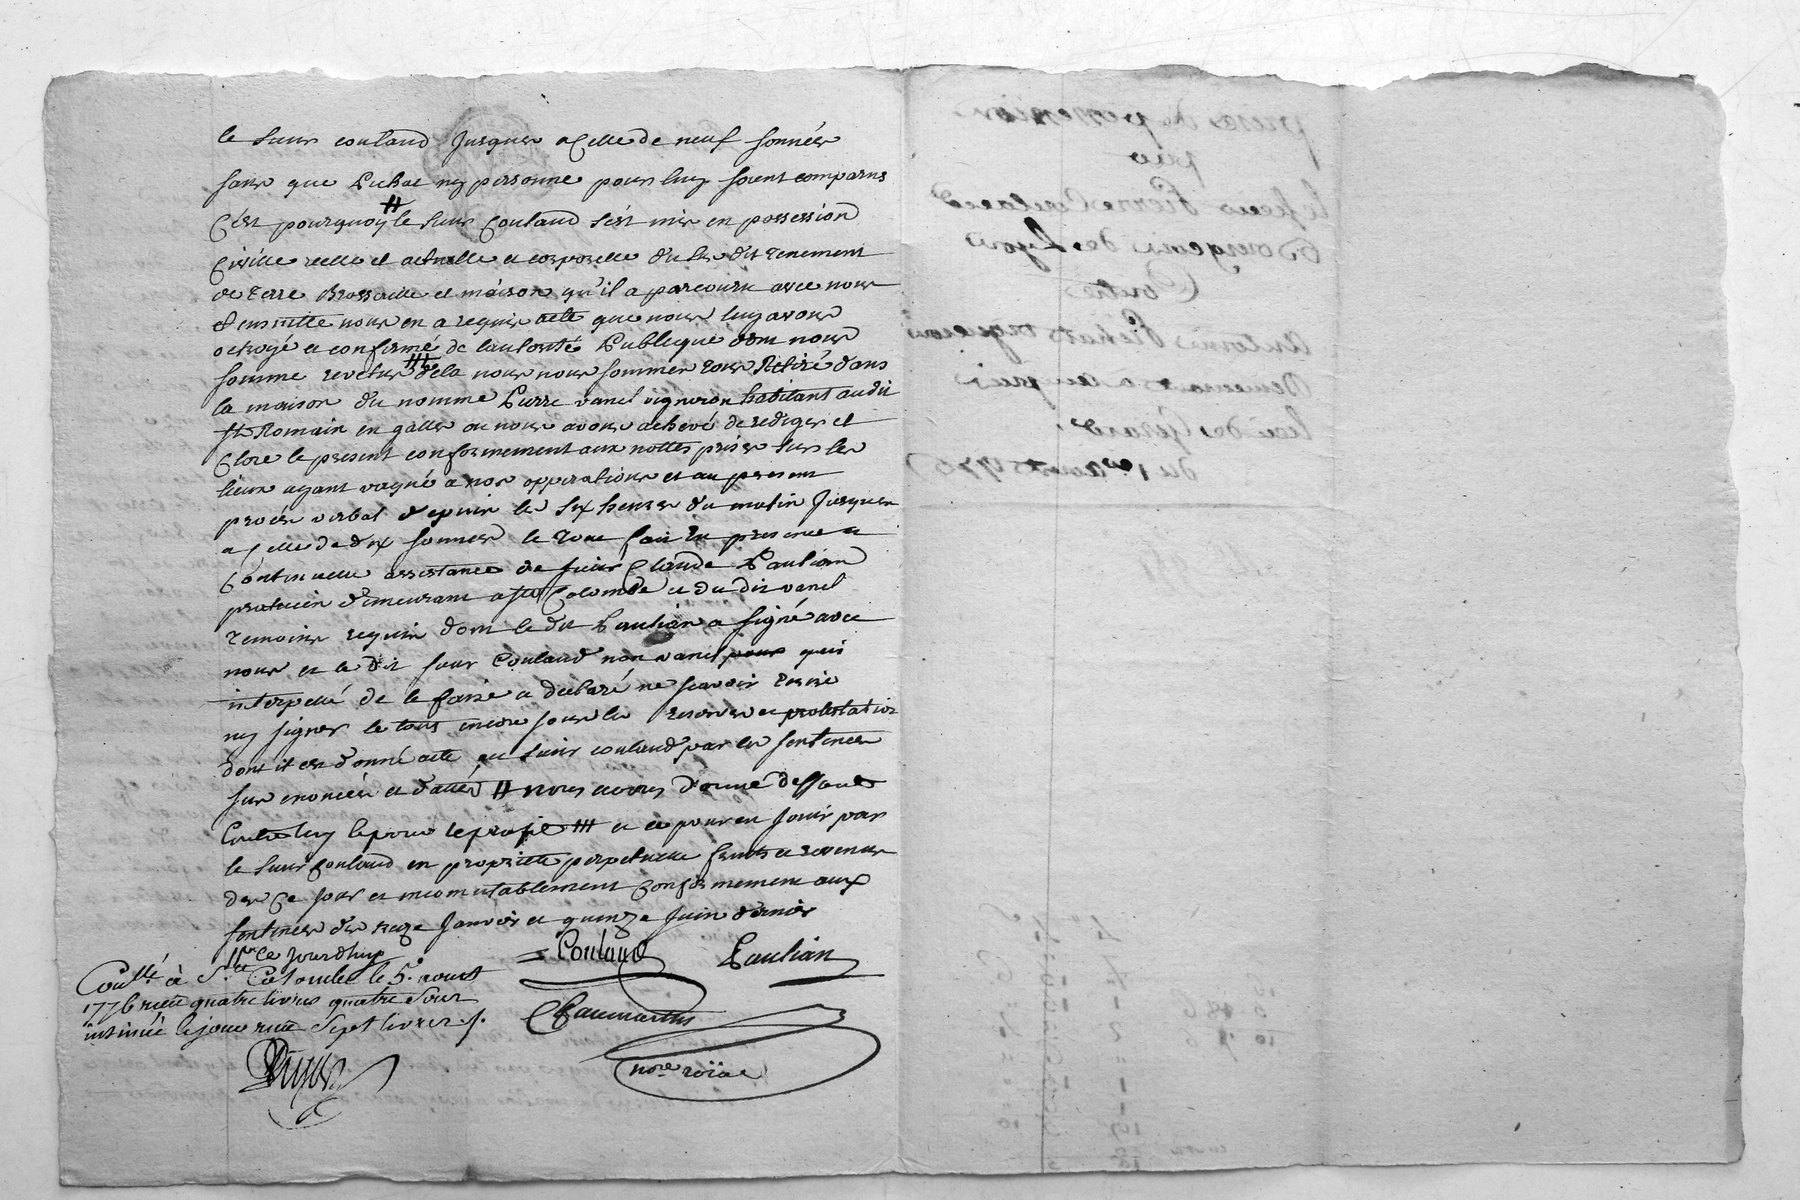 le sieur coulaud jusques a celle de neuf sonnées
sans que Pichat ny personne pour luy soient comparus
C'est pourquoy # le sieur Coulaud s'est mis en possession
Civille reelle et actuelle et corporelle du susdit tenement
de terre Brossaille et maison qu'il a parcouru avec nous
Et ensuitte nous en a requis acte que nous luy avons
octroyé et confirmé de l'autorité Publique dont nous
somme revetus ### de la nous nous sommes tous Retiré dans
la maison du nommé Pierre vanel vigneron habitant audit
St Romain en galles ou nous avons achevé de rediger et
Clore le present conformement aux nottes prises sur les
lieux ayant vaqué a nos opperations et au present
procès verbal depuis les six heures du matin jusques
a celle de dix sonnées le tout fait En presence et
Continuelle assistance de sieur Claude Paulian
praticien demeurant a Ste Colombe et du dit vanel
temoins requis dont le dit Paulian a signé avec
nous et le dit sieur Coulaud non vanel pour qui
interpellé de le faire a declaré ne scavoir Ecrire
ny signer le tout encore sous les reserves et protestation
dont il est donné acte au sieur coulaud par les sentences
sus enoncées et dattées # nous avons donné deffaut
Contre luy &amp; pour le profit ### et ce pour en jouir par
le sieur Coulaud en proprieté perpetuelle fruits et revenus
des Ce jour et incomutablement Conformement aux
sentences des treze Janvier et quinze Juin dernier
Ce jourdhuy
Coulaud Paulian
Coullé à Ste Colombe le 5e aoust
1776 reçu quatre livres quatre sous
insinué le jour reçu Sept livres
Chaumartin
nore roïal
prise de possession
par
le sieur Pierre Coulaud
Bourgeois de Lyon
Contre
Antoine Pichat vigneron